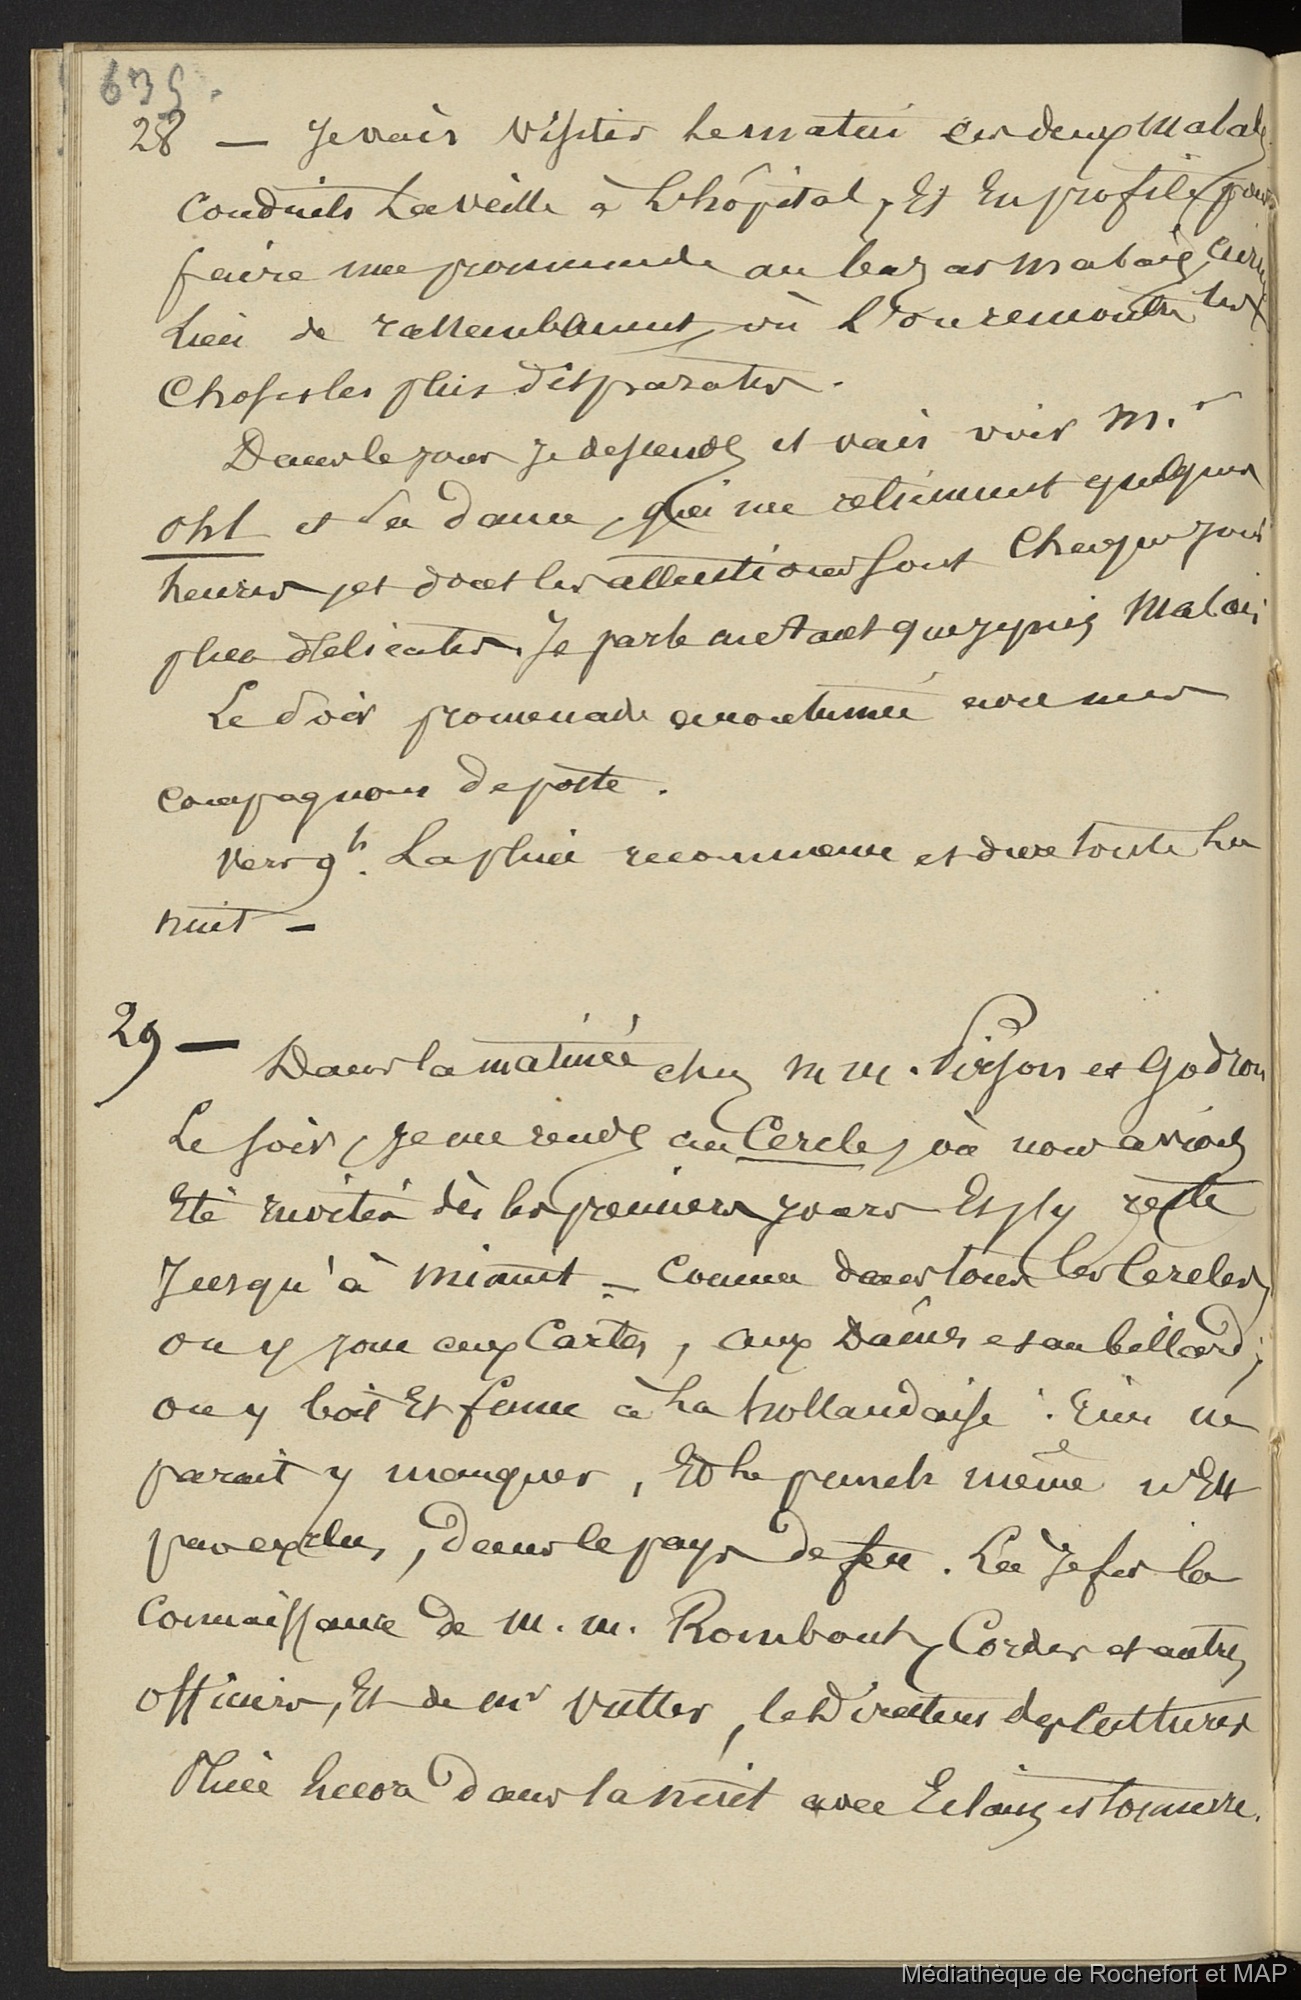 635.
28 — Je vais visiter le matin les deux malades
conduits la veille à l'hôpital, Et En profite pour
faire une promenade au bazar malais,
lieu de rassemblement, où l'on rencontre les
choses les plus disparates.
Dans le jour je descends et vais voir M.r
Ohl et sa dame, qui me retiennent quelques
heures, et dont les attentions sont chaque jour
plus délicates. Je parle autant que je puis Malais
Le soir promenade accoutumée avec mes
compagnons de poste.
Vers 9h. La pluie recommence et dure toute la
nuit —
29 — Dans la matinée chez m m. Pirson et Godron
Le soir, je me rends au Cercle, où nous avions
Eté invités dès les premiers jours Et j'y reste
Jusqu'à minuit — Comme dans tous les Cercles,
on y joue aux Cartes, aux Dames et au billard;
on y boit Et fume à la hollandaise : Rien ne
parait y manquer, Et le punch même n'Est
pas exclus, dans le pays de feu. Là Je fis la
connaissance de m. m. Rombout, Cordes et autres
officiers, Et de mr Vutter, le Directeur des Cultures
Pluie encore dans la nuit avec Eclairs et tonnerre.
Médiathèque de Rochefort et MAP